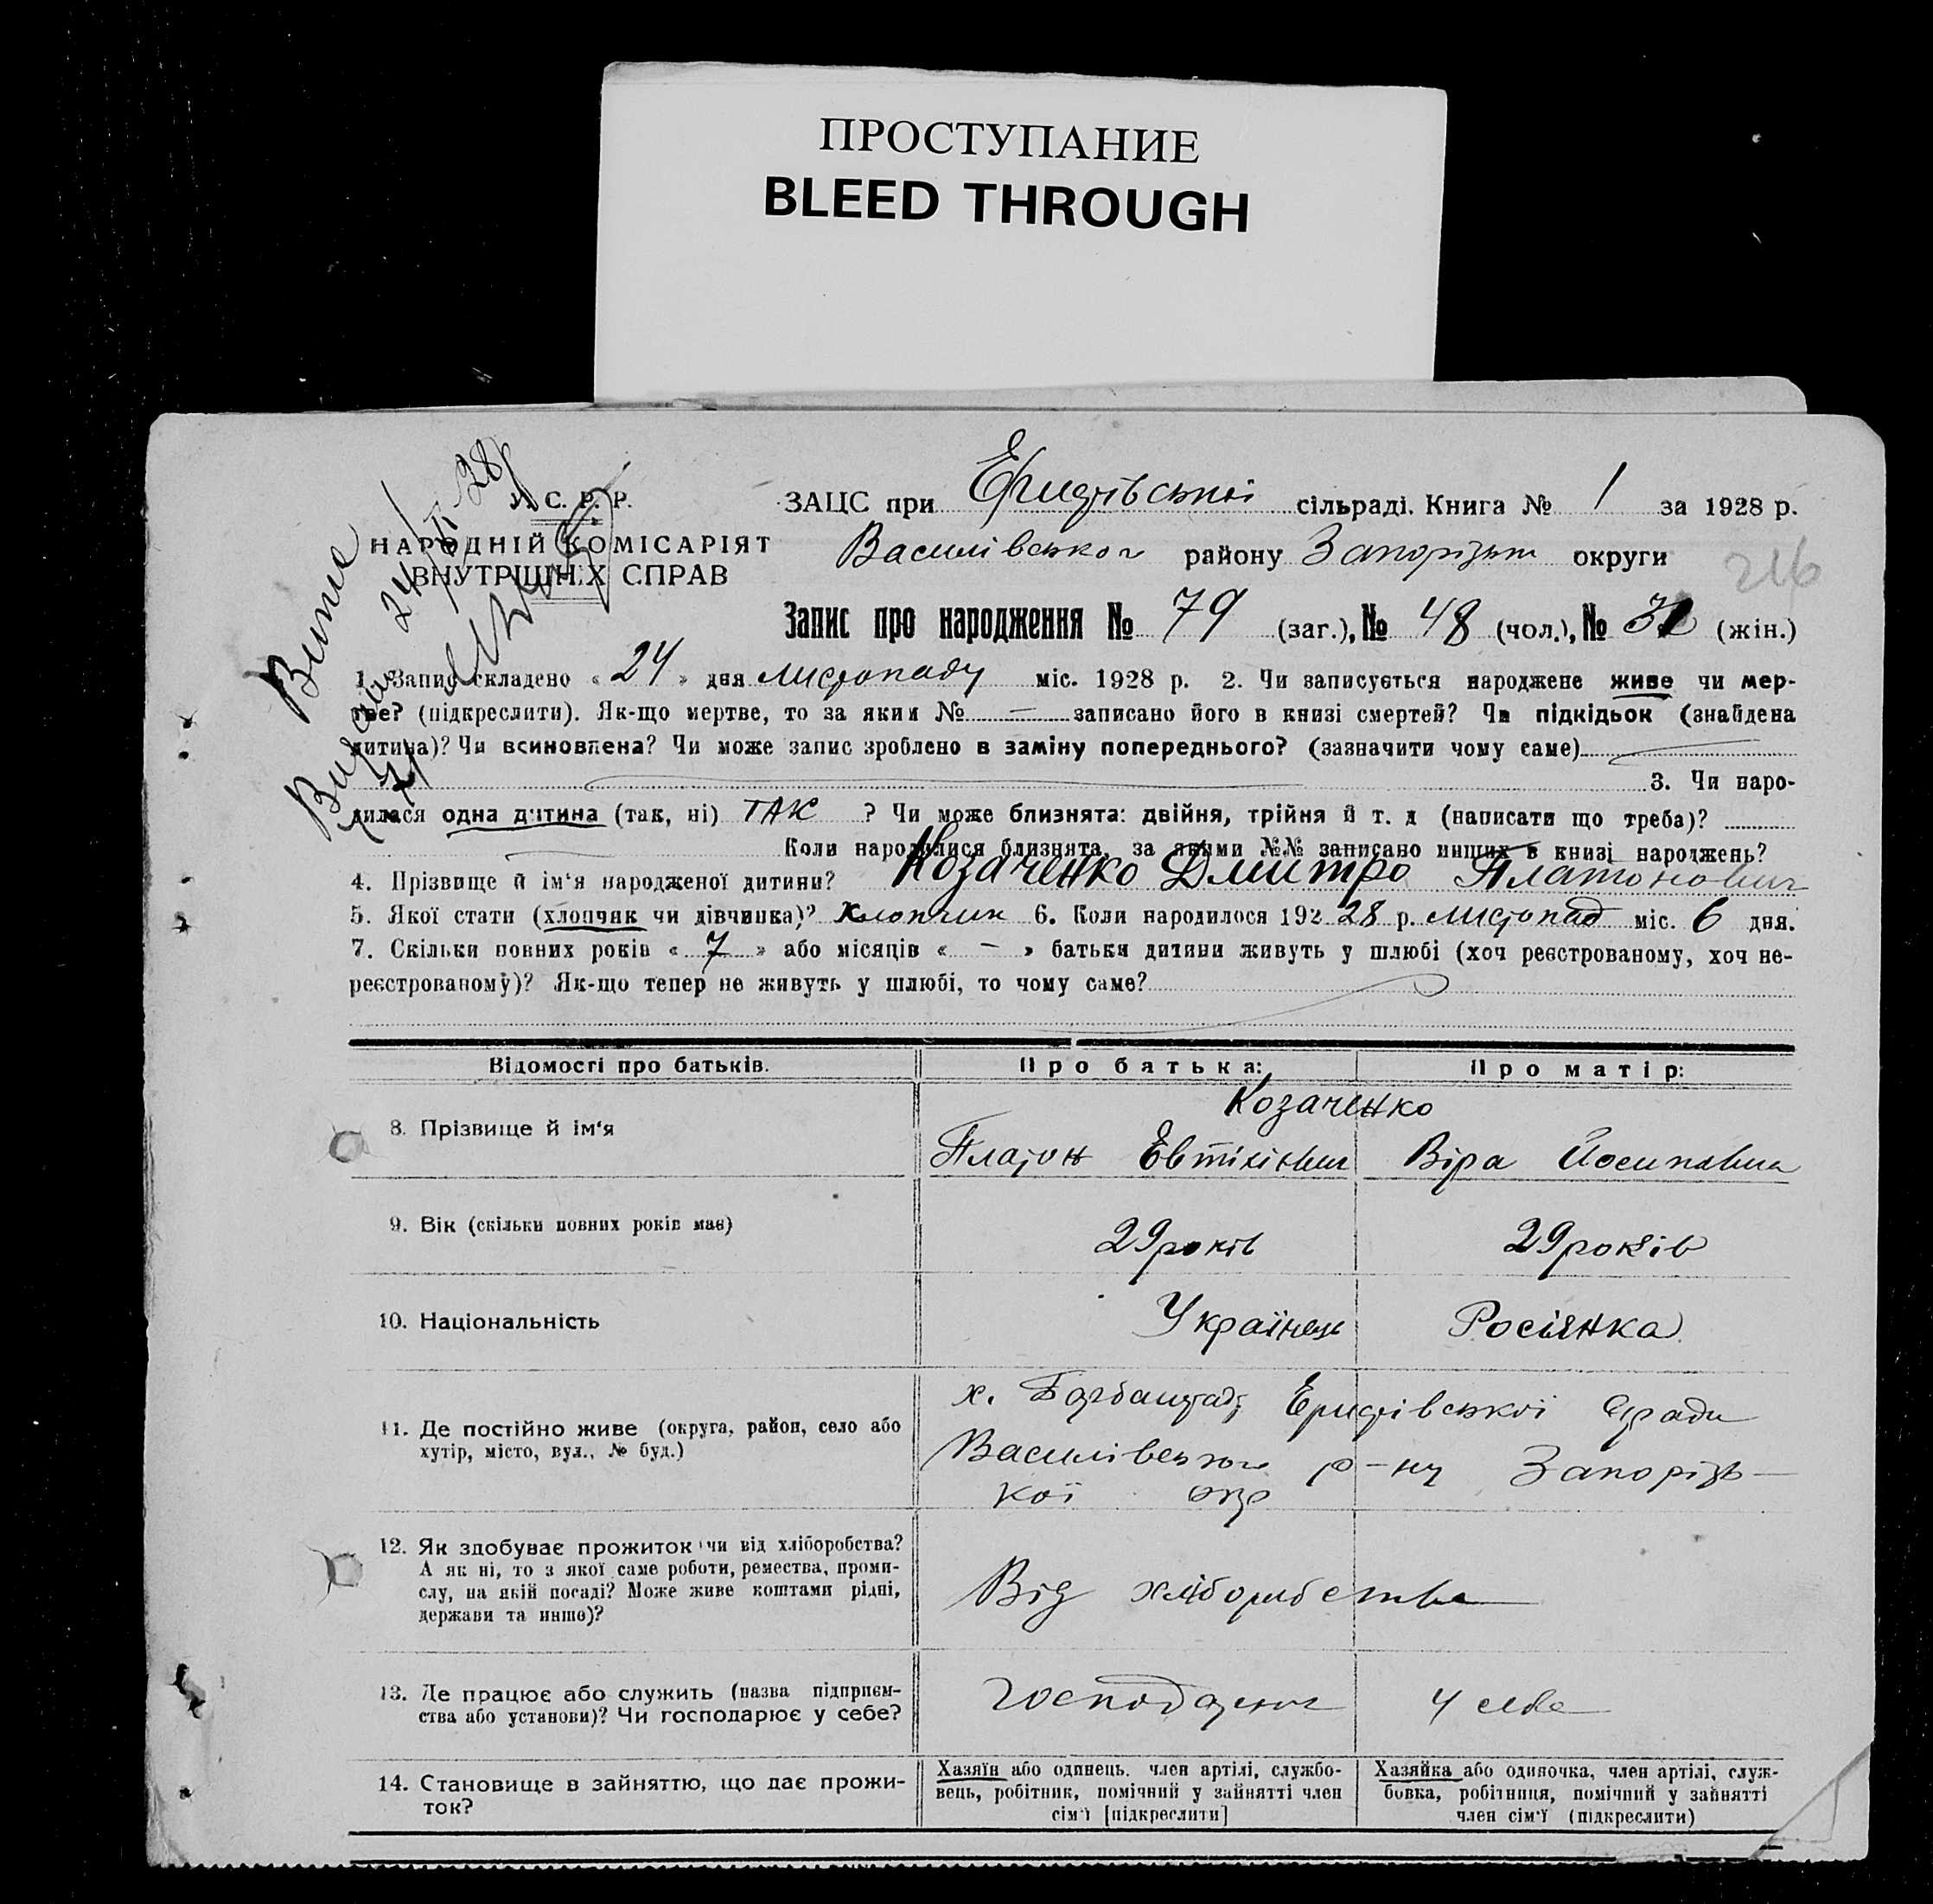 ПРОСТУПАНИЕ
BLEED THROUGH
У. С. Р. Р.
НАРОДНІЙ КОМІСАРІЯТ
ВНУТРІШНІХ СПРАВ
Витяг
24/XI 28
ЗАЦС при Ористівській сільраді. Книга № 1 за 1928 р.
Василівського району Запорізьк округи
216
Запис про народження № 79 (заг.), № 48 (чол.), № 31 (жін.)
1. Запис складено « 24 » дня листопаду міс. 1928 р. 2. Чи записується народжене живе чи мер-
тве? (підкреслити). Як-що мертве, то за яким № — записано його в книзі смертей? Чи підкідьок (знайдена
дитина)? Чи всиновлена? Чи може запис зроблено в заміну попереднього? (зазначити чому саме)
3. Чи наро-
дилася одна дитина (так, ні) ТАК ? Чи може близнята: двійня, трійня й т. д (написати що треба)?
Коли народилися близнята, за якими №№ записано инших в книзі народжень?
4. Прізвище й ім'я народженої дитини? Козаченко Дмитро Платонович
5. Якої стати (хлопчик чи дівчинка)? Хлопчик 6. Коли народилося 192 28 р. листопад міс. 6 дня.
7. Скільки повних років « 7 » або місяців « — » батьки дитини живуть у шлюбі (хоч реєстрованому, хоч не-
реєстрованому)? Як-що тепер не живуть у шлюбі, то чому саме?
Відомості про батьків.
Про батька:
Про матір:
8. Прізвище й ім'я
Козаченко
Платон Евтихієвич
Віра Йосипівна
9. Вік (скільки повних років має)
29 років
29 років
10. Національність
Українець
Росіянка
11. Де постійно живе (округа, район, село або
хутір, місто, вул., № буд.)
х. Ористівської с/ради
Василівського р-ну Запорізь-
кої окр
12. Як здобуває прожиток чи від хліборобства?
А як ні, то з якої саме роботи, ремества, проми-
слу, на якій посаді? Може живе коштами рідні,
держави та инше)?
Від хліборобства
13. Де працює або служить (назва підприєм-
ства або установи)? Чи господарює у себе?
господарює у себе
14. Становище в зайняттю, що дає прожи-
ток?
Хазяїн або одинець, член артілі, службо-
вець, робітник, помічний у зайнятті член
сім'ї [підкреслити]
Хазяйка або одиночка, член артілі, служ-
бовка, робітниця, помічний у зайнятті
член сім'ї (підкреслити)